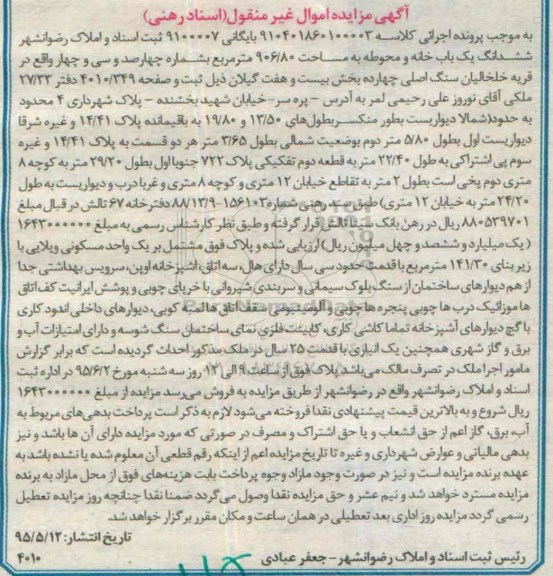 آگهی مزایده اموال غیر منقول(اسناد رهنی)
به موجب پرونده اجرائی کلاسه ۹۱۰۴۰۱۸۶۰۱۰۰۰۰۳ بایگانی ۹۱۰۰۰۰۷ ثبت اسناد و املاک رضوانشهر
ششدانگ یک باب خانه و محوطه به مساحت ۹۰۶/۸۰ مترمربع بشماره چهارصد و سی و چهار واقع در
قریه خلخالیان سنگ اصلی چهارده بخش بیست و هفت گیلان ذیل ثبت و صفحه ۴۰۱۰/۳۴۹ دفتر ۲۷/۳۲
ملکی آقای نوروز علی رحیمی لمر به آدرس - پره سر- خیابان شهید بخشنده - پلاک شهرداری ۴ محدود
به حدود(شمالا دیواریست بطور منکسر بطول‌های ۱۳/۵۰ و ۱۹/۸۰ به باقیمانده پلاک ۱۴/۴۱ و غیره شرقا
دیواریست اول بطول ۵/۸۰ متر دوم بوضعیت شمالی بطول ۳/۶۵ متر هر دو قسمت به پلاک ۱۴/۴۱ و غیره
سوم پی اشتراکی به طول ۲۲/۴۰ متر به قطعه دوم تفکیکی پلاک ۷۲۲ جنوبا اول بطول ۲۹/۲۰ متر به کوچه ۸
متری دوم پخی است بطول ۲ متر به تقاطع خیابان ۱۲ متری و کوچه ۸ متری و غربا درب و دیواریست به طول
۲۴/۲۰ متر به خیابان ۱۲ متری) طبق سند رهنی شماره ۱۵۶۱۰۳-۸۸/۱۳/۹ دفترخانه ۶۷ تالش در قبال مبلغ
۸۸۰۵۳۹۷۰۱ ریال در رهن بانک سینا تالش قرار گرفته و طبق نظر کارشناس رسمی به مبلغ ۱۶۴۳۰۰۰۰۰۰
(یک میلیارد و ششصد و چهل میلیون ریال) ارزیابی شده و پلاک فوق مشتمل بر یک واحد مسکونی ویلایی با
زیر بنای ۱۴۱/۳۰ مترمربع با قدمت حدود سی سال دارای هال، سه اتاق، اشپزخانه اوپن، سرویس بهداشتی جدا
از هم دیوارهای ساختمان از سنگ بلوک سیمانی و سربندی شیروانی با خرپای چوبی و پوشش ایرانیت کف اتاق
ها موزائیک درب ها چوبی پنجره ها چوبی و آلومینیومی سقف اتاق ها لمبه کوبی، دیوارهای داخلی اندود کاری
با گچ دیوارهای آشپزخانه تماما کاشی کاری، کابینت فلزی نمای ساختمان سنگ شوسه و دارای امتیازات آب و
برق و گاز شهری همچنین یک انباری با قدمت ۲۵ سال در ملک مذکور احداث گردیده است که برابر گزارش
مامور اجرا ملک در تصرف مالک می‌باشد پلاک فوق از ساعت ۹ الی ۱۲ روز سه شنبه مورخ ۹۵/۶/۲ در اداره ثبت
اسناد و املاک رضوانشهر واقع در رضوانشهر از طریق مزایده به فروش می‌رسد مزایده از مبلغ ۱۶۴۳۰۰۰۰۰۰
ریال شروع و به بالاترین قیمت پیشنهادی نقدا فروخته می‌شود لازم به ذکر است پرداخت بدهی‌های مربوط به
آب، برق، گاز اعم از حق انشعاب و یا حق اشتراک و مصرف در صورتی که مورد مزایده دارای آن ها باشد و نیز
بدهی مالیاتی و عوارض شهرداری و غیره تا تاریخ مزایده اعم از اینکه رقم قطعی آن معلوم شده یا نشده باشد به
عهده برنده مزایده است و نیز در صورت وجود مازاد وجوه پرداخت بابت هزینه‌های فوق از محل مازاد به برنده
مزایده مسترد خواهد شد و نیم عشر و حق مزایده نقدا وصول می‌گردد ضمنا نقدا چنانچه روز مزایده تعطیل
رسمی گردد مزایده روز اداری بعد تعطیلی در همان ساعت و مکان مقرر برگزار خواهد شد.
تاریخ انتشار: ۹۵/۵/۱۲
رئیس ثبت اسناد و املاک رضوانشهر- جعفر عبادی
۴۰۱۰